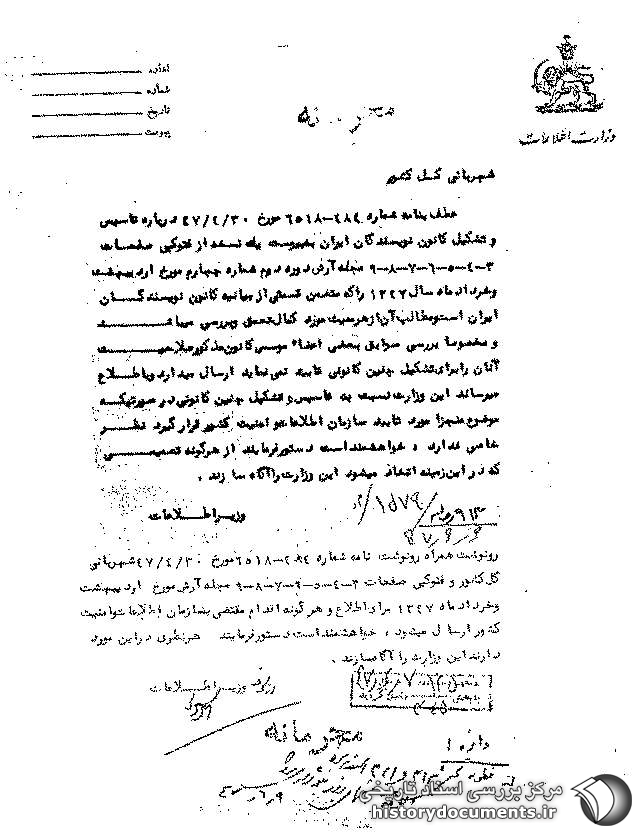 اداره
شماره
تاریخ
پیوست
وزارت اطلاعات
محرمانه
شهربانی کل کشور
عطف بنامه شماره ۴۸۴-۶۵۱۸ مورخ ۴۷/۴/۳۰ درباره تاسیس
و تشکیل کانون نویسندگان ایران بپیوست یک نسخه از فتوکپی صفحات
۳-۴-۵-۶-۷-۸-۹ مجله آرش دوره دوم شماره چهارم مورخ اردیبهشت
و خرداد ماه سال ۱۳۴۷ را که متضمن قسمتی از بیانیه کانون نویسندگان
ایران است و مطالب آن از هر حیث مورد کمال تحقق و بررسی میباشد
و مخصوصا بررسی سوابق بعضی اعضاء موسس کانون مذکور صلاحیت
آنان را برای تشکیل چنین کانونی تایید نمی نماید ارسال میدارد و باطلاع
میرساند این وزارت نسبت به تاسیس و تشکیل چنین کانونی در صورتیکه
موضوع منجزا مورد تایید سازمان اطلاعات و امنیت کشور قرار گیرد نظر
خاصی ندارد ، خواهشمند است دستور فرمایند از هرگونه تصمیمی
که در این زمینه اتخاذ میشود این وزارت را آگاه سازند .
وزیر اطلاعات
رونوشت همراه رونوشت نامه شماره مورخ ۴۷/۴/۳۰ شهربانی
کل کشور و فتوکپی صفحات ۳-۴-۵-۶-۷-۸-۹ مجله آرش مورخ اردیبهشت
و خرداد ماه ۱۳۴۷ برای اطلاع و هرگونه اقدام مقتضی بسازمان اطلاعات و امنیت
کشور ارسال میشود ، خواهشمند است دستور فرمایند هر نظری در این مورد
دارند این وزارت را آگاه سازند .
وزیر اطلاعات
محرمانه
مرکز بررسی اسناد تاریخی
historydocuments.ir